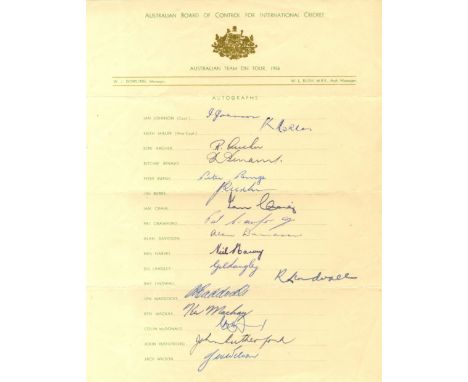 AUSTRALIAN BOARD OF CONTROL FOR INTERNATIONAL CRICKET
AUSTRALIAN TEAM ON TOUR, 1956
W. J. DOWLING, Manager. W. L. RUSH, M.B.E., Asst. Manager.
AUTOGRAPHS
IAN JOHNSON (Capt.) I Johnson
KEITH MILLER (Vice-Capt.) K Miller
RON ARCHER R. Archer
RITCHIE BENAUD R Benaud
PETER BURGE Peter Burge
JIM BURKE J Burke
IAN CRAIG Ian Craig
PAT CRAWFORD Pat Crawford
ALAN DAVIDSON Alan Davidson
NEIL HARVEY Neil Harvey
GIL LANGLEY Gil Langley
RAY LINDWALL R Lindwall
LEN MADDOCKS Maddocks
KEN MACKAY Ken Mackay
COLIN McDONALD
JOHN RUTHERFORD John Rutherford
JACK WILSON J W Wilson